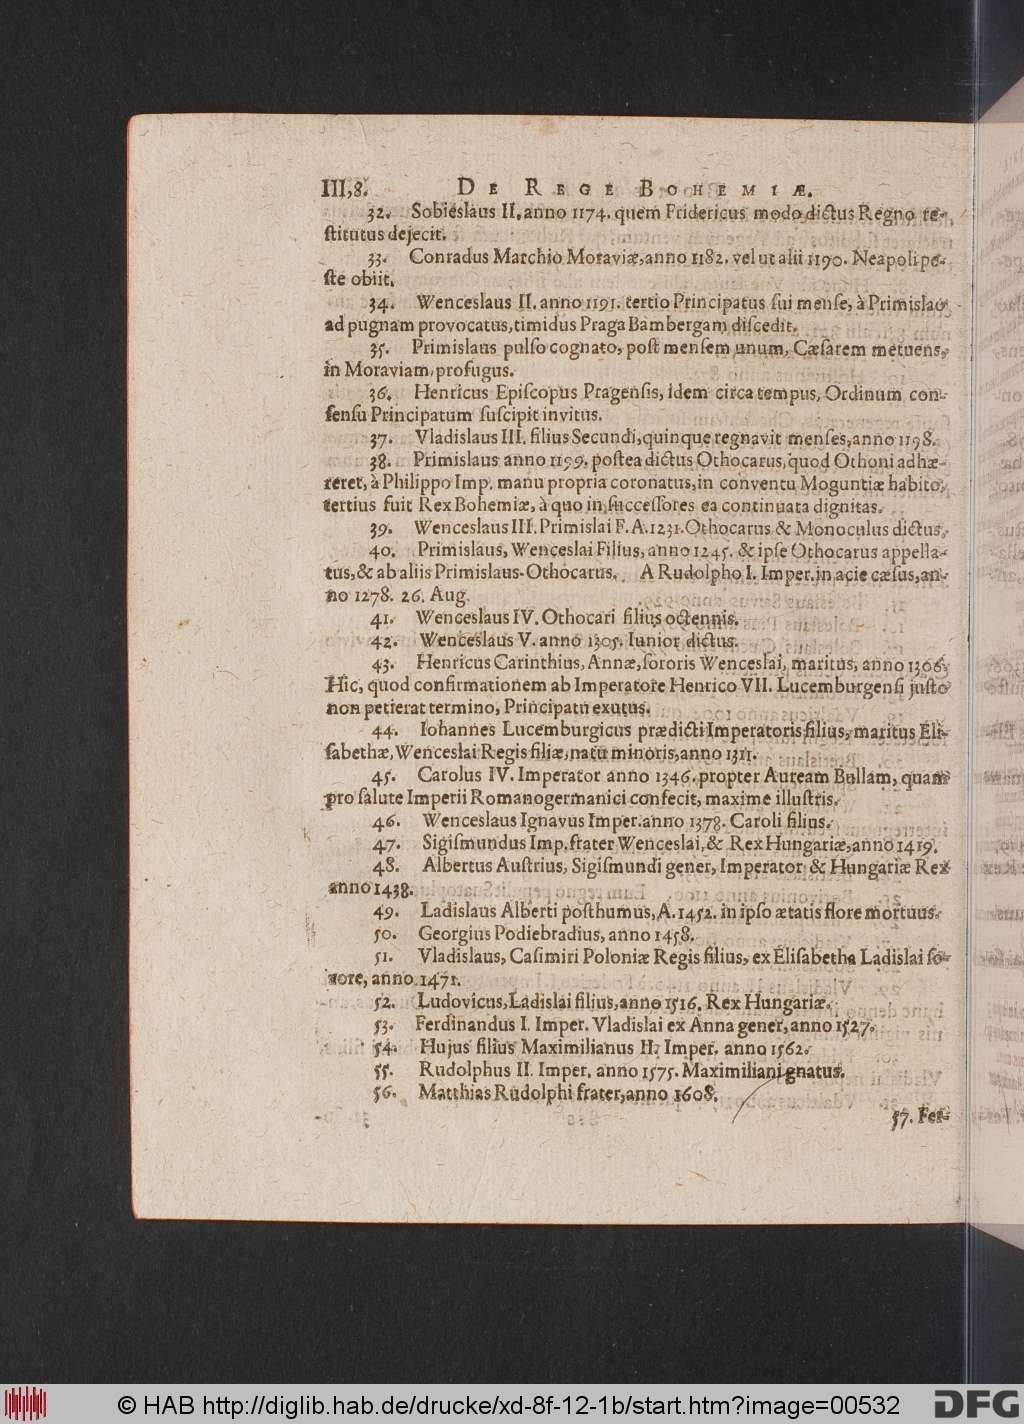 III,8. DE REGE BOHEMIÆ.
32. Sobieslaus II. anno 1174. quem Fridericus modo dictus Regno re-
ſtitutus dejecit.
33. Conradus Marchio Moraviæ, anno 1182. vel ut alii 1190. Neapoli pe-
ſte obiit.
34. Wenceslaus II. anno 1191. tertio Principatus ſui menſe, à Primislao
ad pugnam provocatus, timidus Praga Bambergam diſcedit.
35. Primislaus pulſo cognato, poſt menſem unum, Cæſarem metuens,
in Moraviam, profugus.
36. Henricus Epiſcopus Pragenſis, idem circa tempus, Ordinum con-
ſenſu Principatum ſuſcipit invitus.
37. Vladislaus III. filius Secundi, quinque regnavit menſes, anno 1198.
38. Primislaus anno 1199. poſtea dictus Othocarus, quod Othoni adhæ-
reret, à Philippo Imp. manu propria coronatus, in conventu Moguntiæ habito,
tertius fuit Rex Bohemiæ, à quo in ſucceſſores ea continuata dignitas.
39. Wenceslaus III. Primislai F. A. 1231. Othocarus & Monoculus dictus.
40. Primislaus, Wenceslai Filius, anno 1245. & ipſe Othocarus appella-
tus, & ab aliis Primislaus-Othocarus. A Rudolpho I. Imper. in acie cæſus, an-
no 1278. 26. Aug.
41. Wenceslaus IV. Othocari filius octennis.
42. Wenceslaus V. anno 1305. Iunior dictus.
43. Henricus Carinthius, Annæ, ſororis Wenceslai, maritus, anno 1306.
Hic, quod confirmationem ab Imperatore Henrico VII. Lucemburgenſi juſto
non petierat termino, Principatu exutus.
44. Iohannes Lucemburgicus prædicti Imperatoris filius, maritus Eli-
ſabethæ, Wenceslai Regis filiæ, natu minoris, anno 1311.
45. Carolus IV. Imperator anno 1346. propter Auream Bullam, quam
pro ſalute Imperii Romanogermanici confecit, maxime illuſtris.
46. Wenceslaus Ignavus Imper. anno 1378. Caroli filius.
47. Sigiſmundus Imp. frater Wenceslai, & Rex Hungariæ, anno 1419.
48. Albertus Auſtrius, Sigiſmundi gener, Imperator & Hungariæ Rex
anno 1438.
49. Ladislaus Alberti poſthumus, A. 1452. in ipſo ætatis flore mortuus.
50. Georgius Podiebradius, anno 1458.
51. Vladislaus, Caſimiri Poloniæ Regis filius, ex Eliſabetha Ladislai ſo-
rore, anno 1471.
52. Ludovicus, Ladislai filius, anno 1516. Rex Hungariæ.
53. Ferdinandus I. Imper. Vladislai ex Anna gener, anno 1527.
54. Hujus filius Maximilianus II. Imper. anno 1562.
55. Rudolphus II. Imper. anno 1575. Maximiliani gnatus.
56. Matthias Rudolphi frater, anno 1608.
57. Fer-
© HAB http://diglib.hab.de/drucke/xd-8f-12-1b/start.htm?image=00532
DFG